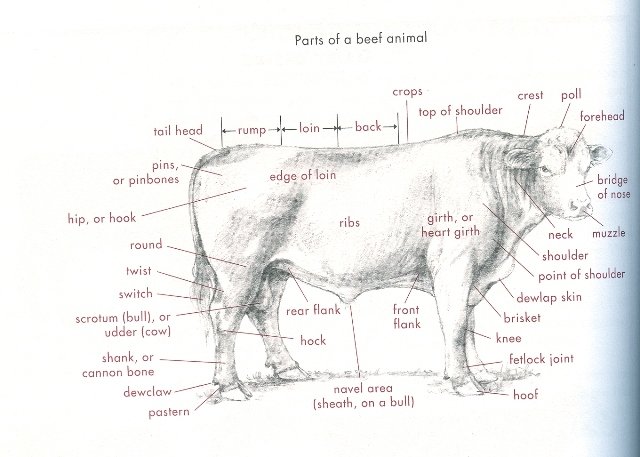 Parts of a beef animal
crops
crest
poll
top of shoulder
forehead
tail head
rump
loin
back
pins,
or pinbones
edge of loin
bridge
of nose
hip, or hook
ribs
girth, or
heart girth
neck
muzzle
round
shoulder
twist
point of shoulder
switch
dewlap skin
scrotum (bull), or
udder (cow)
rear flank
front
flank
brisket
hock
knee
shank, or
cannon bone
fetlock joint
dewclaw
navel area
(sheath, on a bull)
hoof
pastern